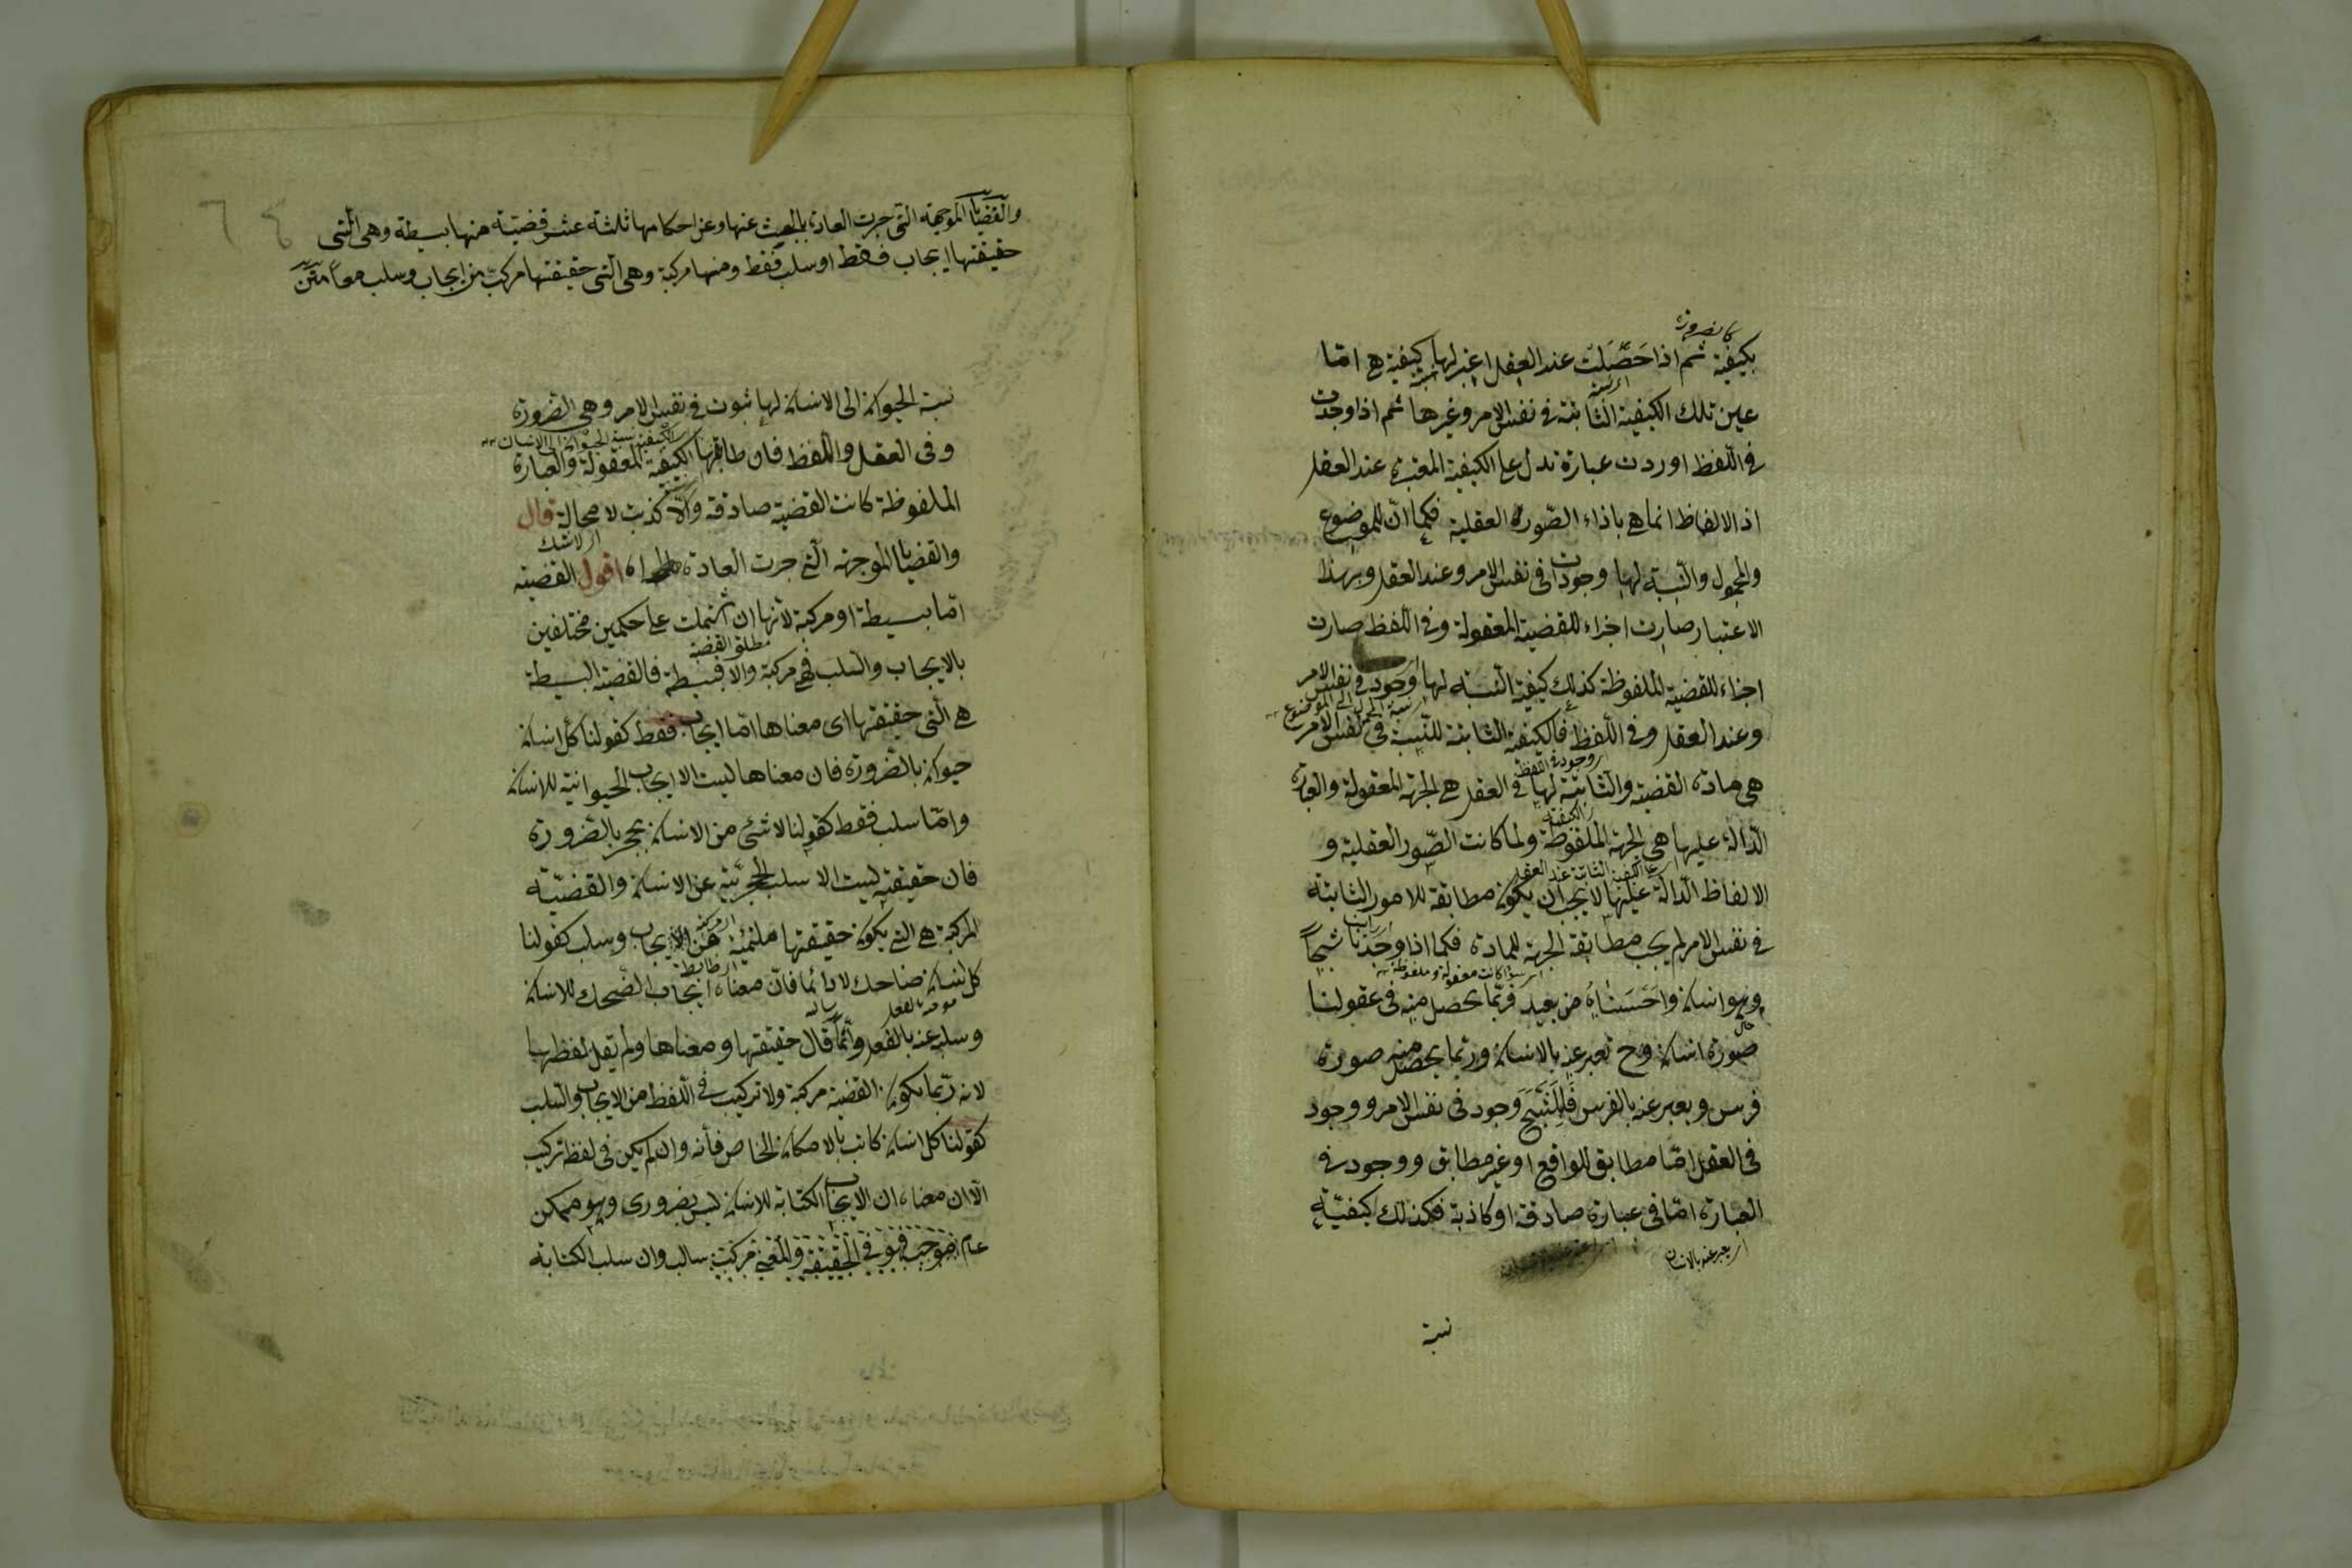 كالضرورة
بكيفية ثم اذا حَصَلَت عند العقل اعتبر لها كيفية هي امّا
عين تلك الكيفية الثابتة في نفس الامر وغيرها ثم اذا وجدت
في اللفظ اوردت عبارة تدل على الكيفية المعتبرة عند العقل
اذ الالفاظ انما هي باذاء الصّورة العقلية فكما انّ للموضوع
والمحمول والنسبة لها وجودات في نفس الامر وعند العقل وبهذا
الاعتبار صارت اجزاء للقضية المعقولة وفي اللفظ صارت
اجزاء للقضية الملفوظة كذلك كيفية النسبة لها وجود في نفس الامر
نسبة المحمول الى الموضوع
وعند العقل وفي اللفظ فالكيفية الثابتة للنسبة في نفس الامر
هي مادة القضية والثابتة لها في العقل هي الجهة المعقولة والعبارة
الكيفية
الدّالة عليها هي الجهة الملفوظة ولما كانت الصّور العقلية و
الكيفية الثابتة عند العقل
الالفاظ الدّالة عليها لا يجب ان يكون مطابقة للامور الثابتة
في نفس الامر لم يجب مطابقة الجهة للمادة فكما اذا وجدنا شبحاً
سواء كانت معقولة وملفوظة
وهو انسان واحسسناه من بعيد فربّما يحصل منه في عقولنا
صورة انسان وح نعبر عنه بالانسان وربما يحصل منه صورة
فرس ويعبر عنه بالفرس فللشبح وجود في نفس الامر ووجود
في العقل امّا مطابق للواقع او غير مطابق ووجود في
العبارة امّا في عبارة صادقة او كاذبة فكذلك كيفيّة
يعبر عنه بالانسان
نسبة
والقضايا الموجهة التي جرت العادة بالبحث عنها وعن احكامها ثلثة عشر قضيّة منها بسيطة وهي التي
حقيقتها ايجاب فقط او سلب فقط ومنها مركبة وهي التي حقيقتها مركبة من ايجاب وسلب معاً متن
نسبة الحيوان الى الانسان لها ثبوت في نفس الامر وهي الضرورة
الكيفية نسبة الحيوان الى الانسان
وفي العقل واللفظ فان طابقها الكيفية المعقولة والعبارة
الملفوظة كانت القضية صادقة والّا كذبت لا محالة قال
لا شك
والقضايا الموجهة التي جرت العادة اه اقول القضية
امّا بسيطة او مركبة لانها ان اشتملت على حكمين مختلفين
مطلق القضية
بالايجاب والسلب فهي مركبة والا فبسيطة فالقضية البسيطة
هي التي حقيقتها اى معناها امّا ايجاب فقط كقولنا كل انسان
حيوان بالضرورة فان معناها ليست الا ايجاب الحيوانية للانسان
وامّا سلب فقط كقولنا لا شئ من الانسان بحجر بالضرورة
فان حقيقته ليست الا سلب الحجريّة عن الانسان والقضيّة
المركبة هي التي يكون حقيقتها ملتئمة من الايجاب وسلب كقولنا
كل انسان ضاحك لا دائما فانّ معناه ايجاب الضحك للانسان
وسلبه عنه بالفعل وانّما قال حقيقتها ومعناها ولم يقل لفظها
لانه ربّما يكون القضية مركبة ولا تركيب في اللفظ من الايجاب والسلب
كقولنا كل انسان كاتب بالامكان الخاص فأنه وان لم يكن في لفظ تركيب
الّا ان معناه ان الايجاب الكتابة للانسان ليس بضروري وهو ممكن
عام موجب فهو في الحقيقة والمعنى مركبة سالب وان سلب الكتابة